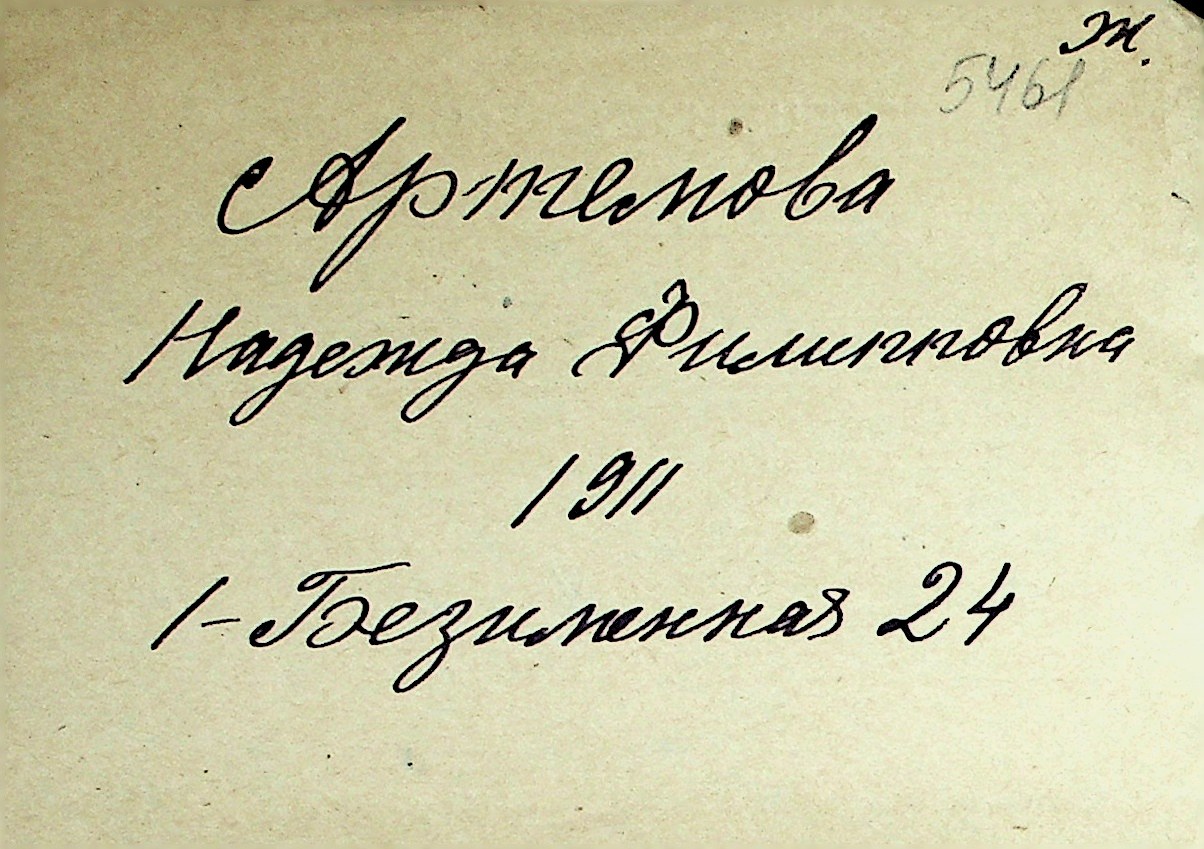 ж.
5461
Артемова
Надежда Филипповна
1911
1-Безименная 24